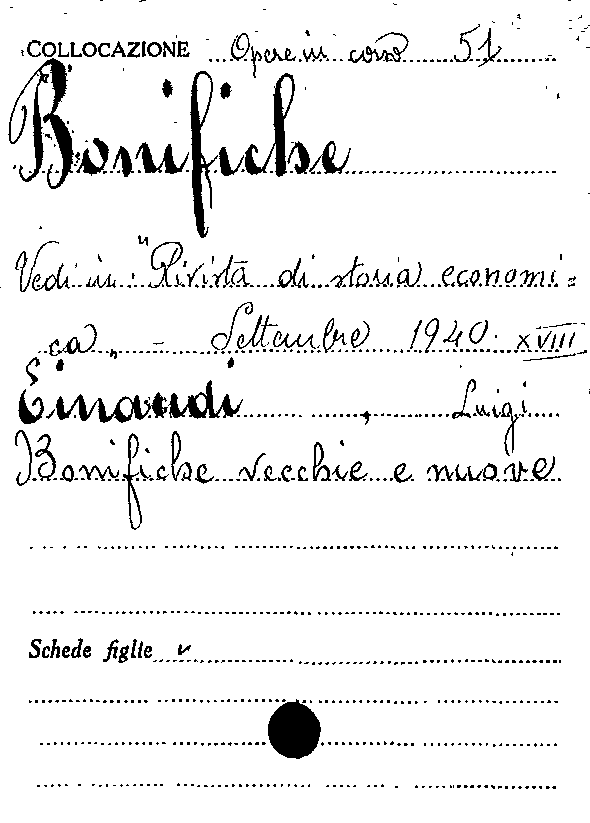 COLLOCAZIONE Opere in corso 51
Bonifiche
Vedi in "Rivista di storia economi=
ca„ - Settembre 1940. XVIII
Einaudi, Luigi
Bonifiche vecchie e nuove
Schede figlie v